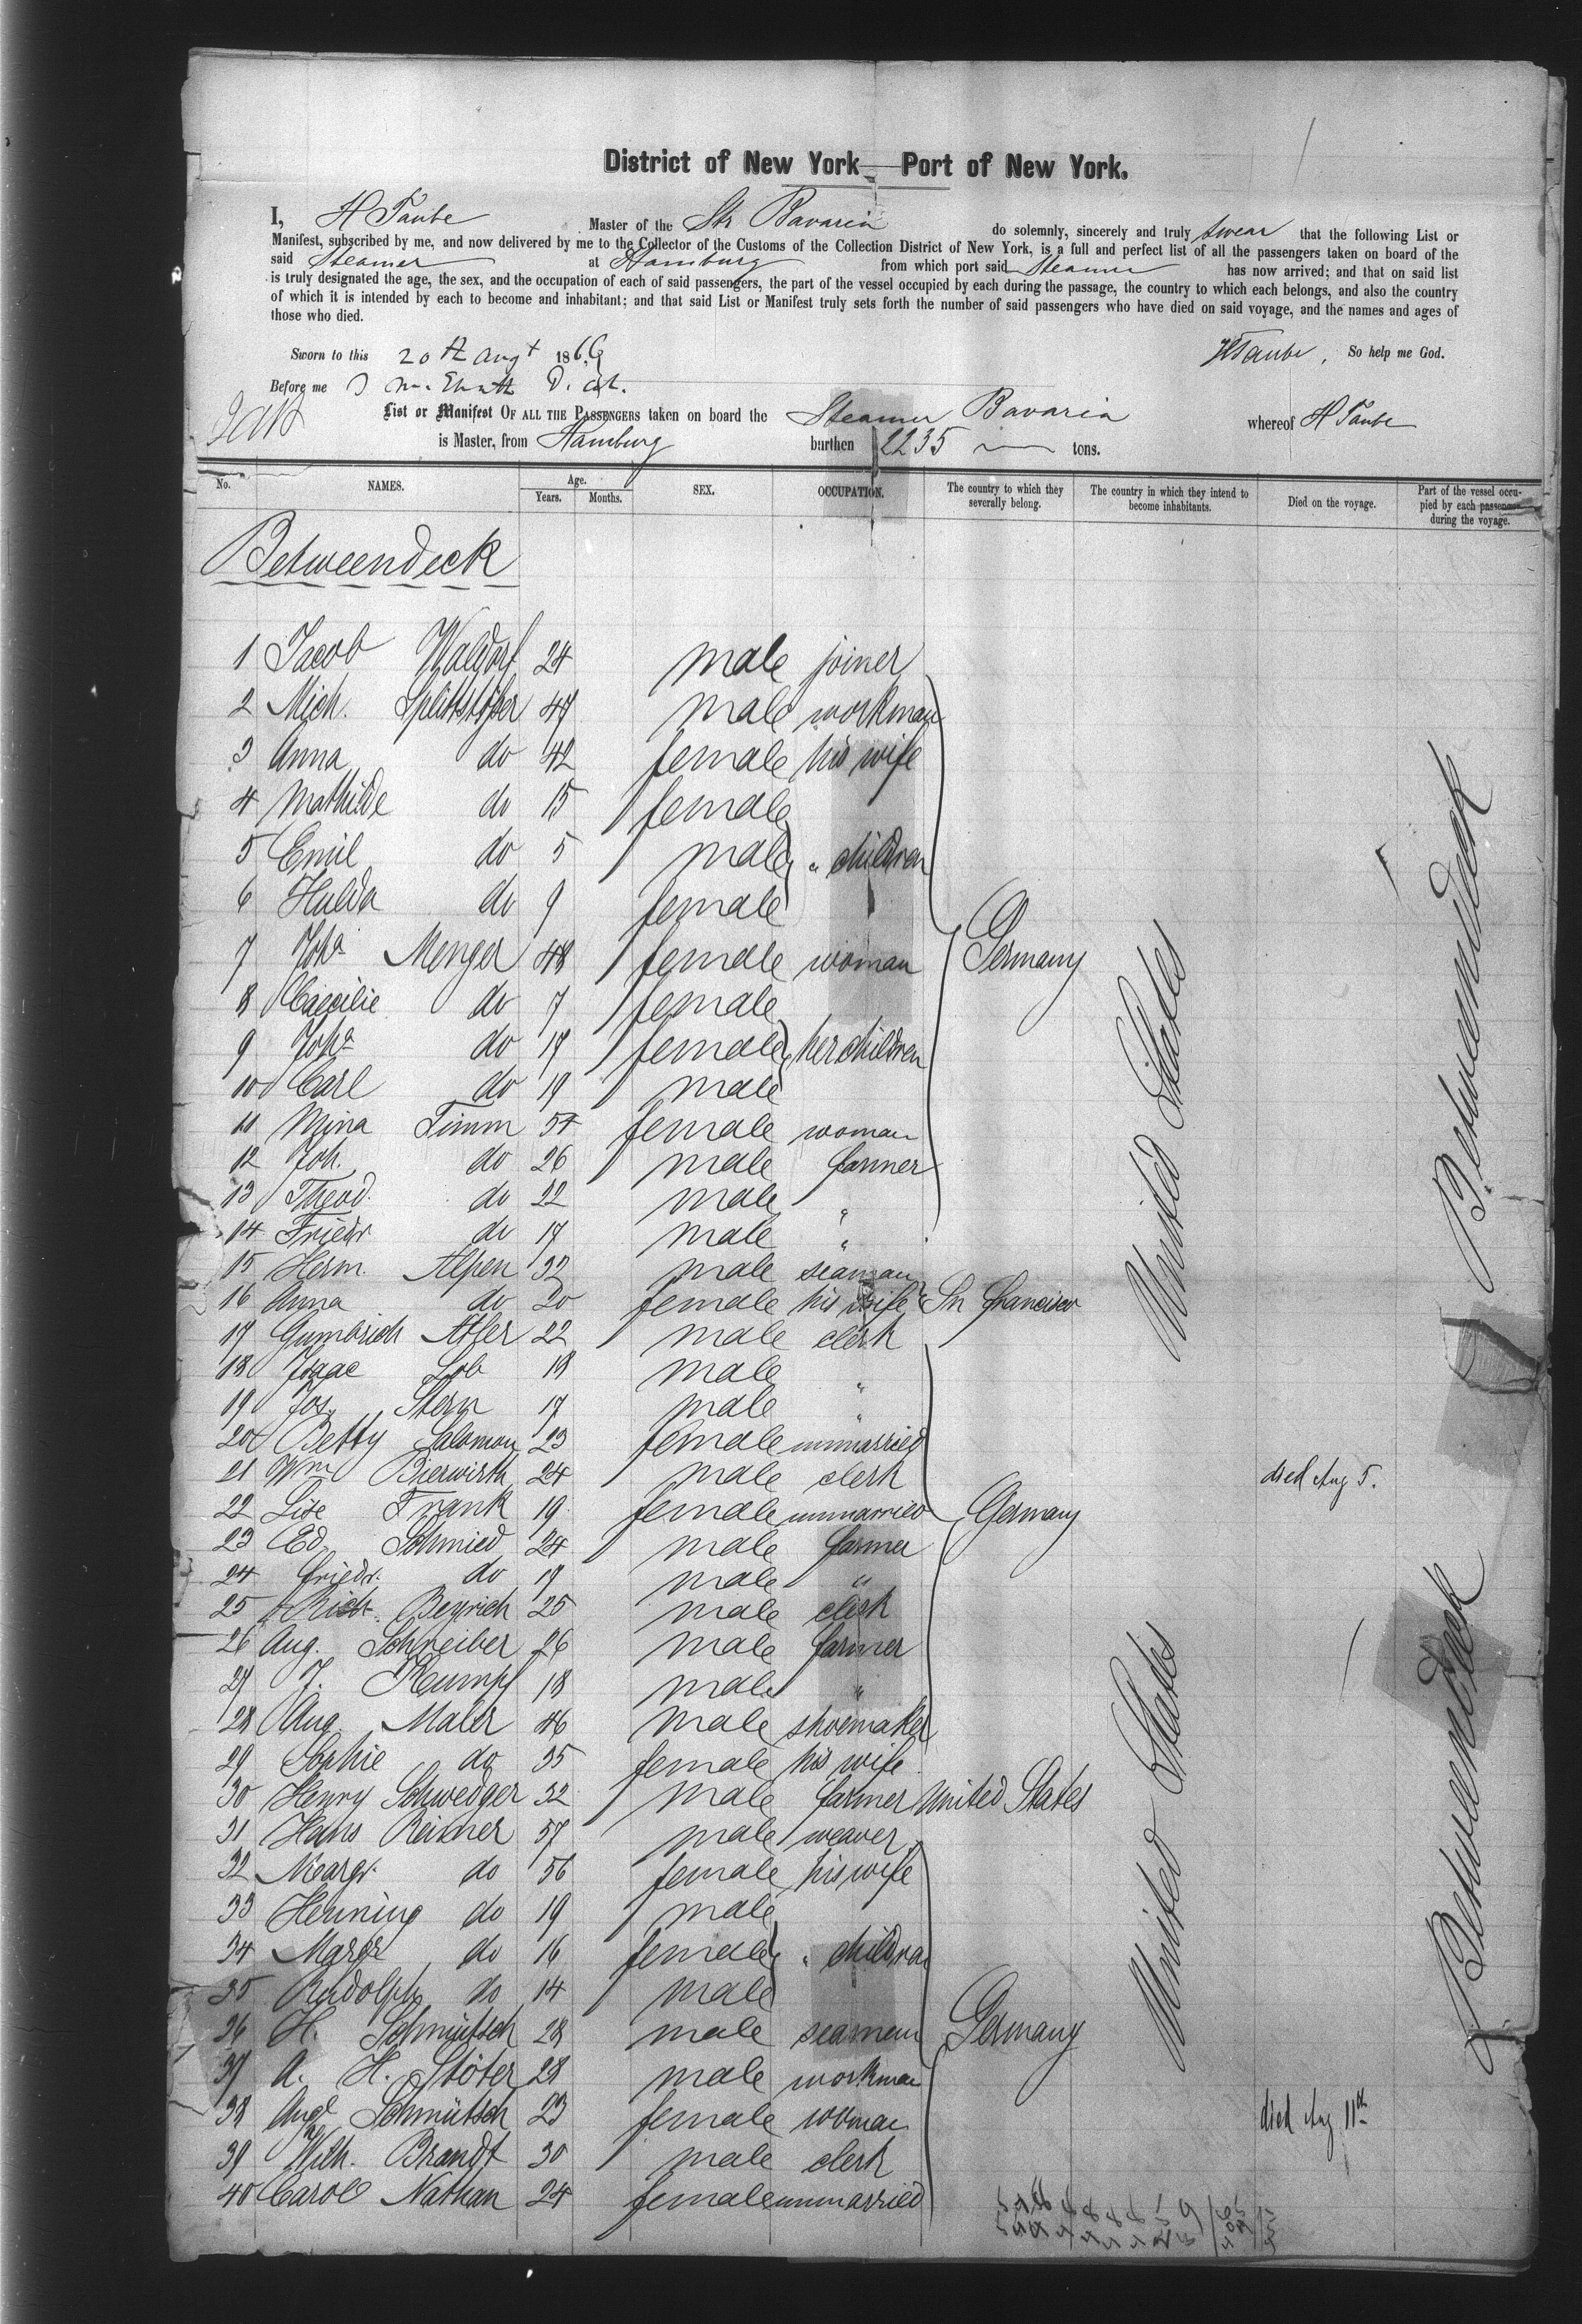 District of New York — Port of New York.
I, H Taube Master of the Str Bavaria do solemnly, sincerely and truly swear that the following List or
Manifest, subscribed by me, and now delivered by me to the Collector of the Customs of the Collection District of New York, is a full and perfect list of all the passengers taken on board of the
said Steamer at Hamburg from which port said Steamer has now arrived; and that on said list
is truly designated the age, the sex, and the occupation of each of said passengers, the part of the vessel occupied by each during the passage, the country to which each belongs, and also the country
of which it is intended by each to become and inhabitant; and that said List or Manifest truly sets forth the number of said passengers who have died on said voyage, and the names and ages of
those who died.
Sworn to this 20th Augt 186 HTaube, So help me God.
Before me
List or Manifest OF ALL THE PASSENGERS taken on board the Steamer Bavaria whereof H Taube
is Master, from Hamburg burthen 2235 tons.
No. NAMES. Age. Years. Months. SEX. OCCUPATION. The country to which they severally belong. The country in which they intend to become inhabitants. Died on the voyage. Part of the vessel occupied by each passenger during the voyage.
Betweendeck
1 Jacob Waldorf 24 male joiner
2 Mich. Splittstößer 47 male workman
3 Anna do 42 female his wife
4 Mathilde do 15 female
5 Emil do 5 male " children
6 Hulda do 9 female
7 Joha Menger 48 female woman Germany
8 Caecilie do 7 female
9 Joha do 17 female her children
10 Carl do 19 male
11 Mina Timm 54 female woman
12 Joh. do 26 male farmer
13 Theod. do 22 male "
14 Friedr do 17 male "
15 Herm. Alpen 32 male seaman
16 Anna do 20 female his wife Sn Francisco
17 Gumbrich 22 male clerk
18 Isaac Lob 18 male "
19 Jos. Stern 17 male "
20 Betty Salomon 23 female unmarried
21 Wm Bierwirth 24 male clerk died Aug 5.
22 Lise Frank 19 female unmarried Germany
23 Ed. Schmied 24 male farmer
24 Friedr. do 17 male "
25 Rich. Beyrich 25 male clerk
26 Aug. Schreiber 26 male farmer
27 J. Kumpf 18 male "
28 Aug. Maler 46 male shoemaker
29 Sophie do 35 female his wife
30 Henry Schwedger 32 male farmer United States
31 Hans Reimer 57 male weaver
32 Margr. do 56 female his wife
33 Henning do 19 male
34 Margr. do 16 female " children
35 Rudolph do 14 male
36 H. Schmütsch 28 male seaman Germany
37 A. H. Stöter 28 male workman
38 Augt Schmütsch 23 female woman died Aug 11th
39 Wilh. Brandt 30 male clerk
40 Carol Nathan 24 female unmarried
United States
United States
Betweendeck
Betweendeck